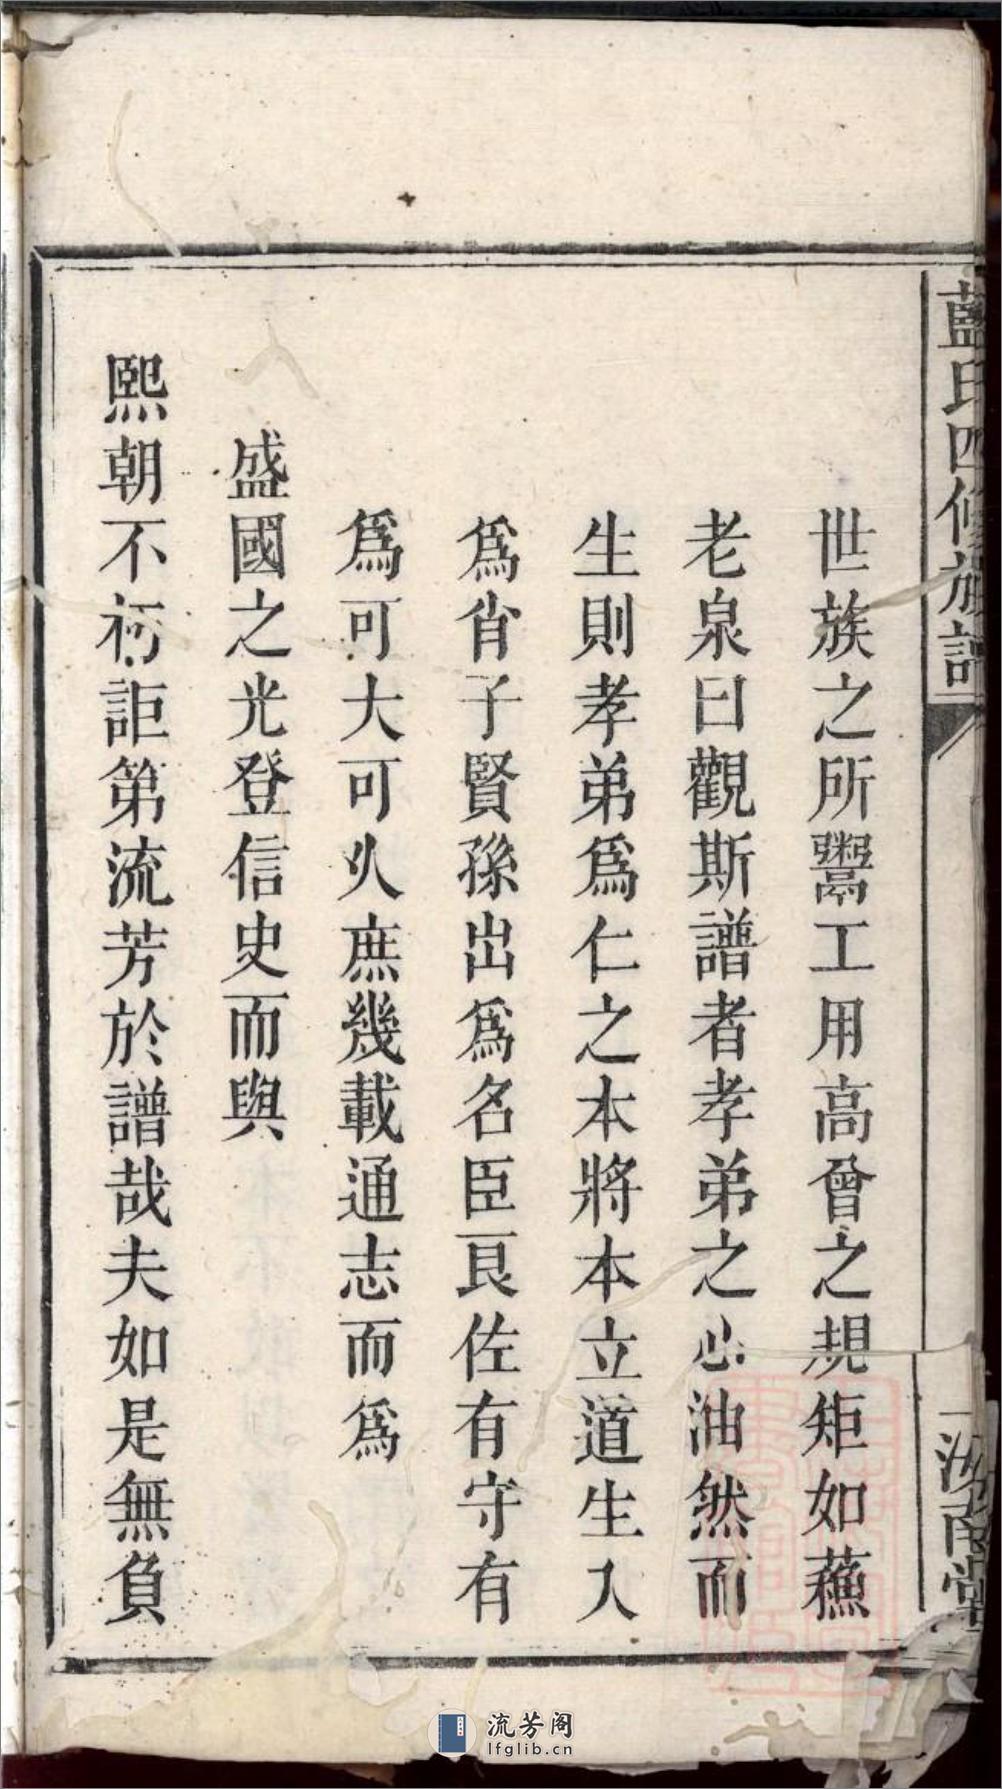 藍氏四修族譜
汝南堂
世族之所鬻工用高曾之規矩如蘓
老泉曰觀斯譜者孝弟之心油然而
生則孝弟爲仁之本將本立道生入
爲肖子賢孫出爲名臣良佐有守有
爲可大可久庶幾載通志而爲
盛國之光登信史而與
熙朝不朽詎第流芳於譜哉夫如是無負
流芳阁
lfglib.cn